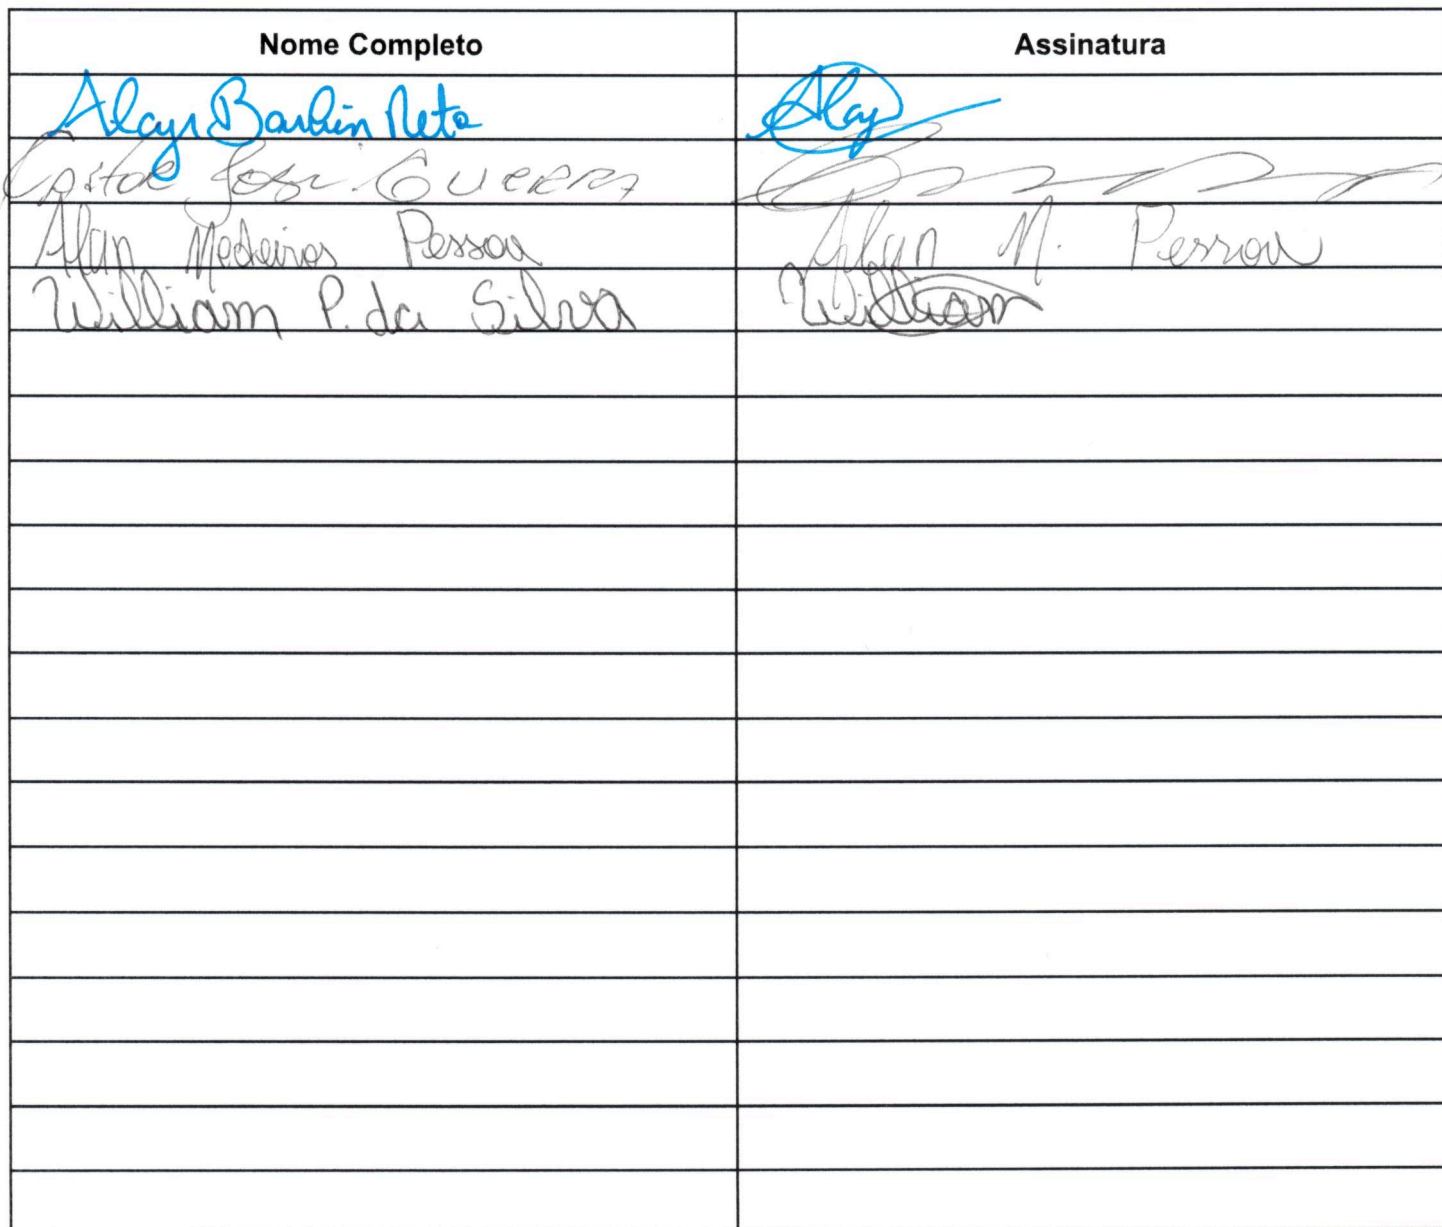 Nome Completo Assinatura
Alayr Barbin Neto Alayr
José Guerra
Alan Medeiros Pessoa Alan M. Pessoa
William P. da Silva William